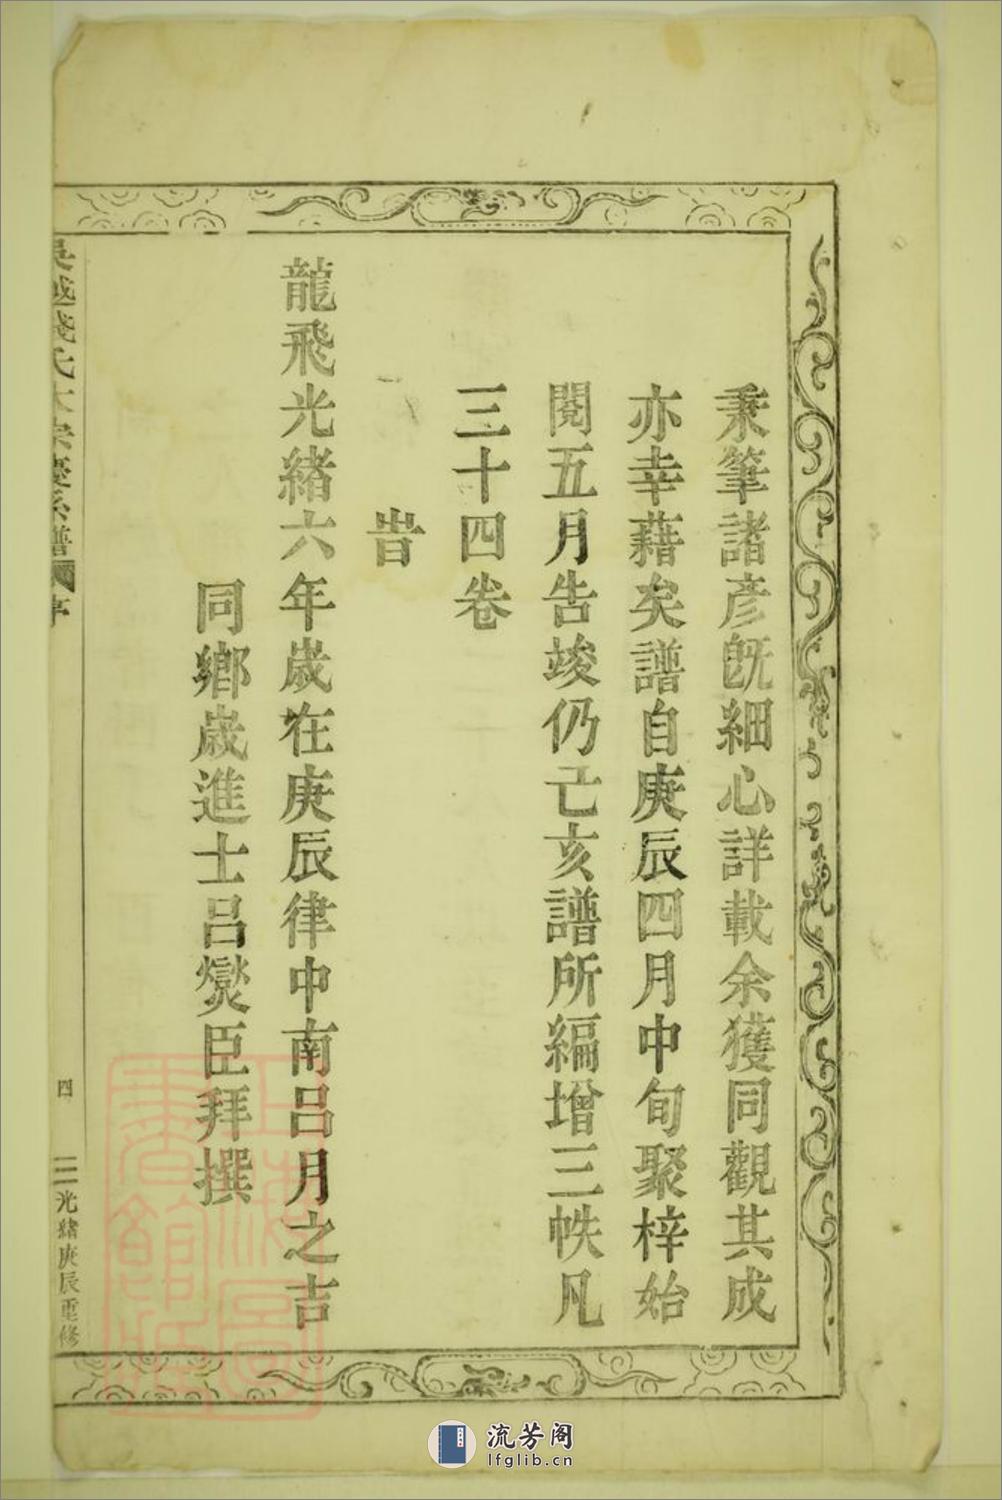 秉筆諸彥旣細心詳載余獲同觀其成
亦幸藉矣譜自庚辰四月中旬聚梓始
閱五月告竣仍亡亥譜所編增三帙凡
三十四卷
旹
龍飛光緒六年歲在庚辰律中南呂月之吉
同鄉歲進士呂爕臣拜撰
吳越錢氏大宗慶系譜 序
四
光緒庚辰重修
上海圖書館藏
流芳阁
lfglib.cn